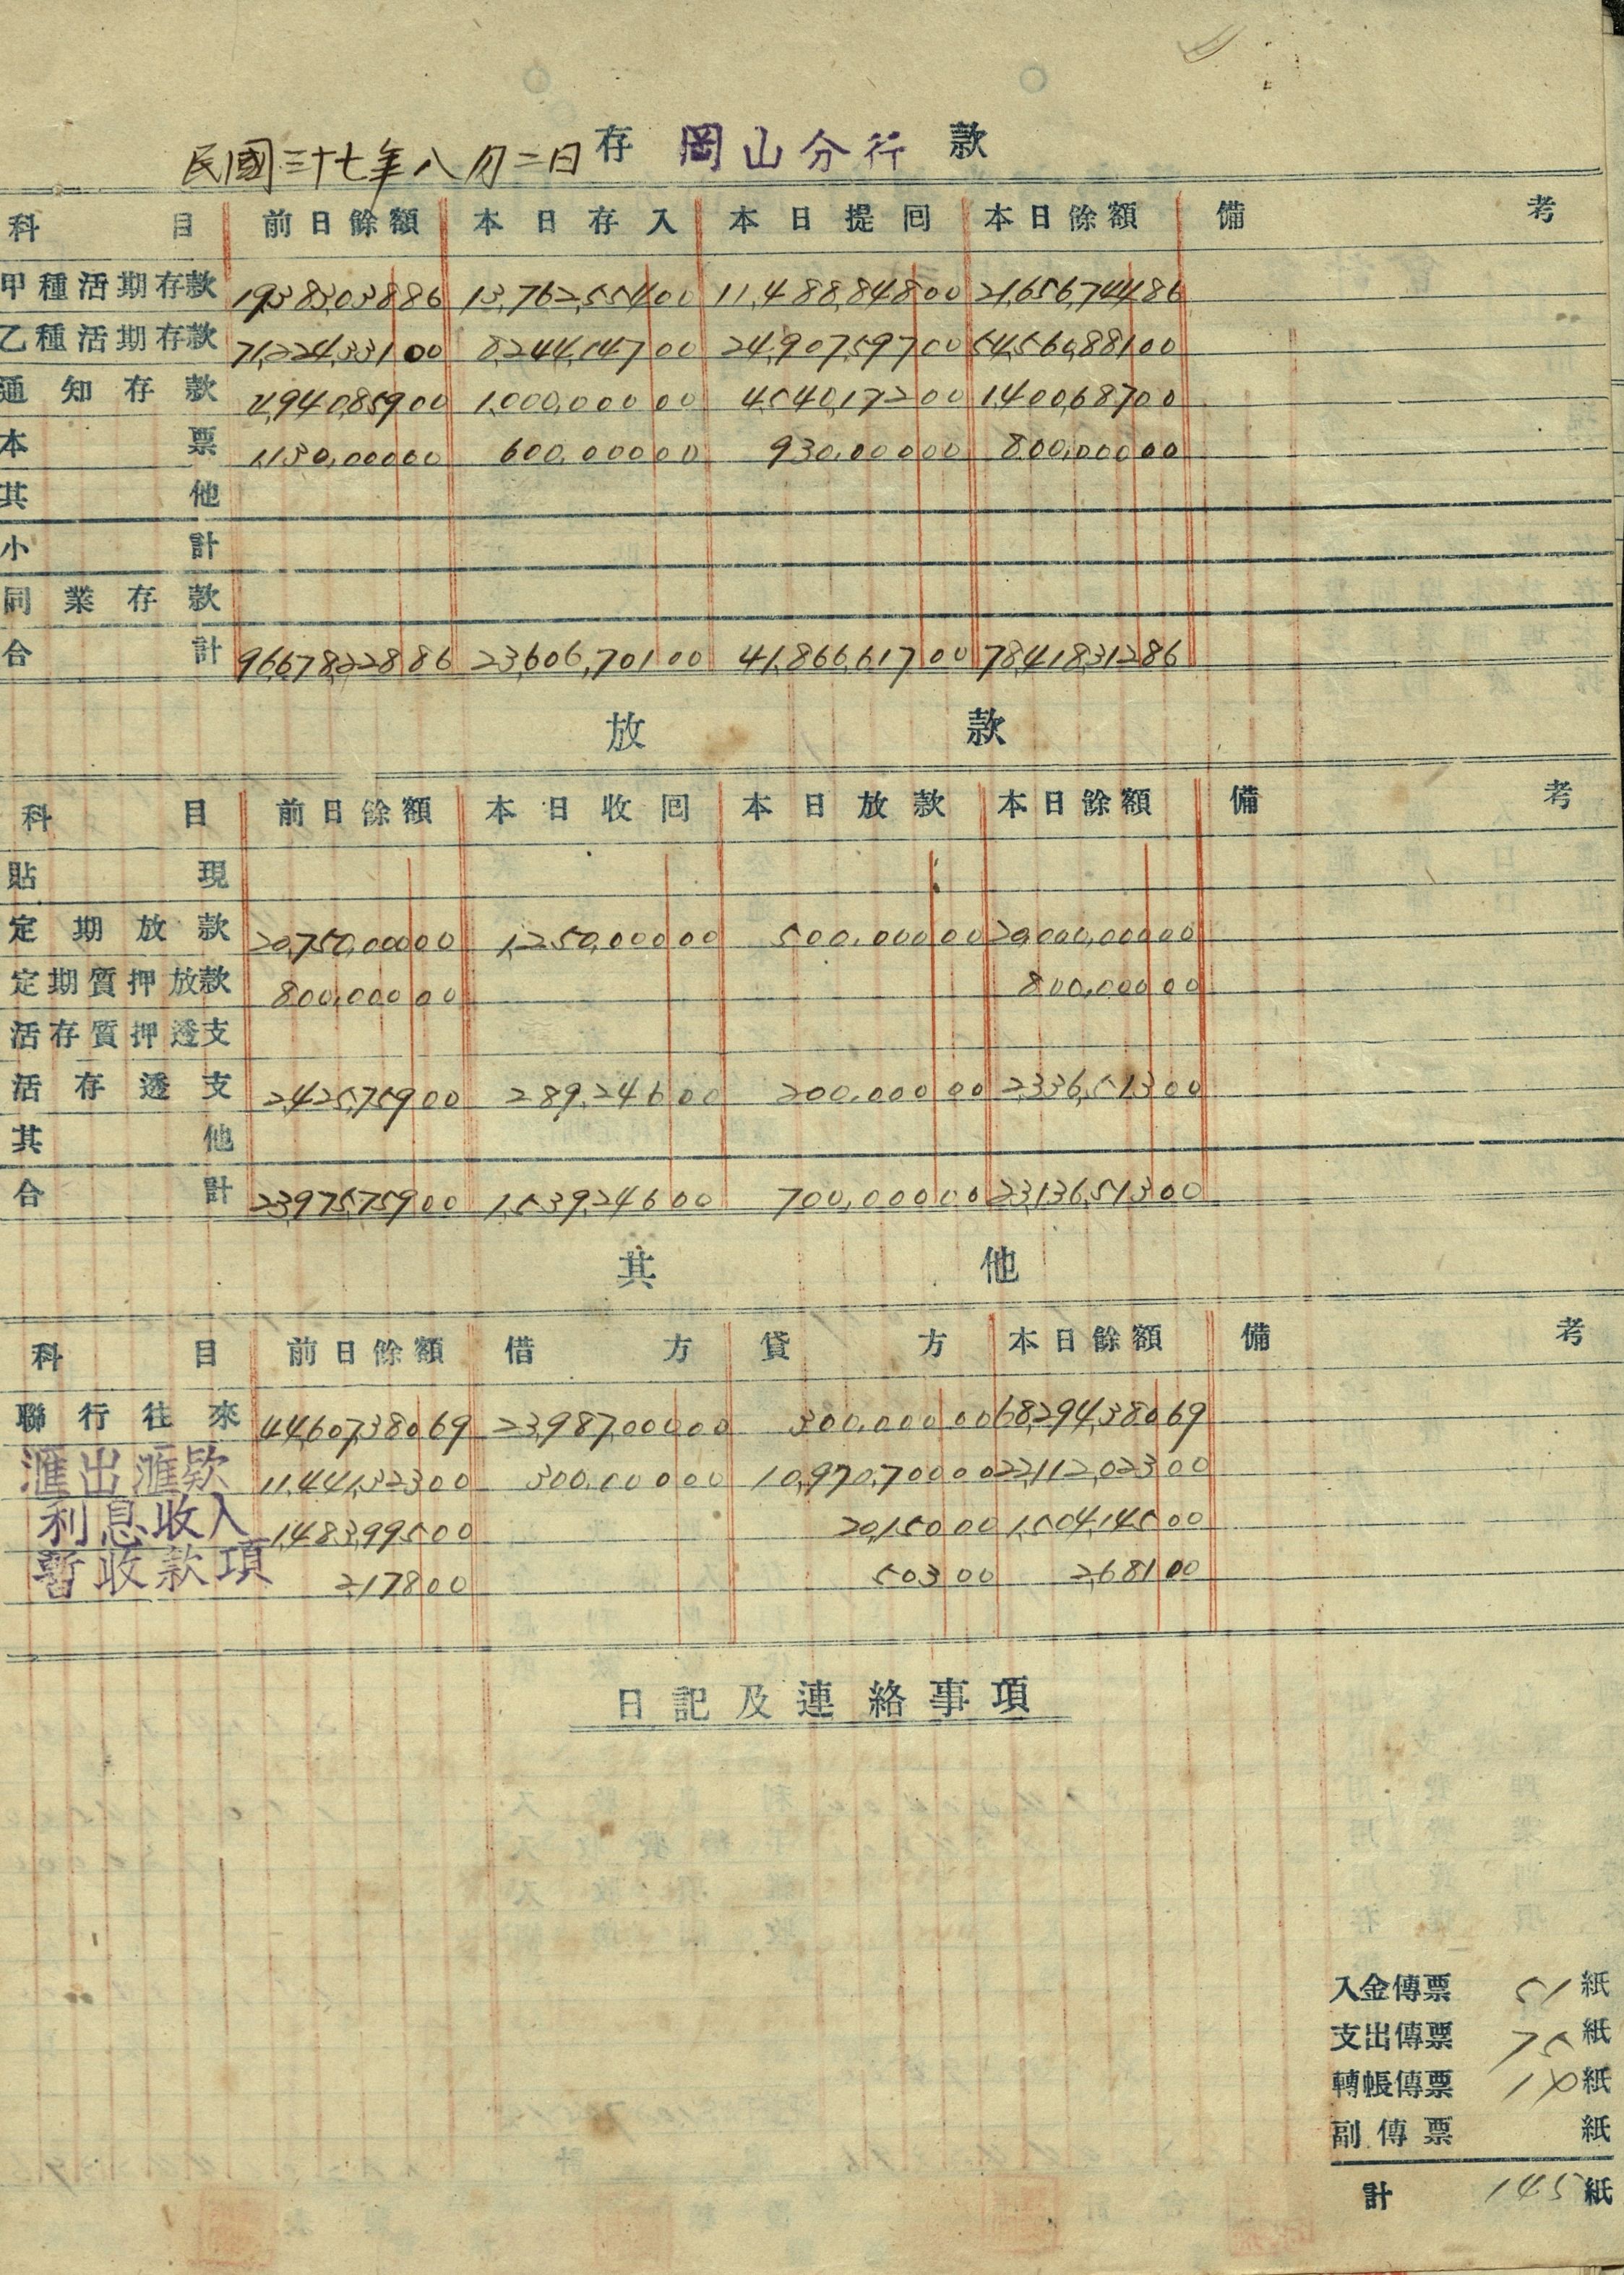 民國三十七年八月二日 存 岡山分行 款
科目 前日餘額 本日存入 本日提回 本日餘額 備考
甲種活期存款 19,383,038 86 13,762,554 00 11,488,848 00 21,656,744 86
乙種活期存款 71,224,331 00 8,244,147 00 24,907,597 00 54,560,881 00
通知存款 4,940,859 00 1,000,000 00 4,540,172 00 1,400,687 00
本票 1,130,000 00 600,000 00 930,000 00 800,000 00
其他
小計
同業存款
合計 96,678,228 86 23,606,701 00 41,866,617 00 78,418,312 86
放款
科目 前日餘額 本日收回 本日放款 本日餘額 備考
貼現
定期放款 20,750,000 00 1,250,000 00 500,000 00 20,000,000 00
定期質押放款 800,000 00 800,000 00
活存質押透支
活存透支 2,425,759 00 289,246 00 200,000 00 2,336,513 00
其他
合計 23,975,759 00 1,539,246 00 700,000 00 23,136,513 00
其他
科目 前日餘額 借方 貸方 本日餘額 備考
聯行往來 44,607,380 69 23,987,000 00 300,000 00 68,294,380 69
滙出滙款 11,441,323 00 300,000 00 10,970,700 00 22,112,023 00
利息收入 1,483,995 00 20,150 00 1,504,145 00
暫收款項 2,178 00 503 00 2,681 00
日記及連絡事項
入金傳票 51 紙
支出傳票 75 紙
轉帳傳票 19 紙
副傳票 紙
計 145 紙